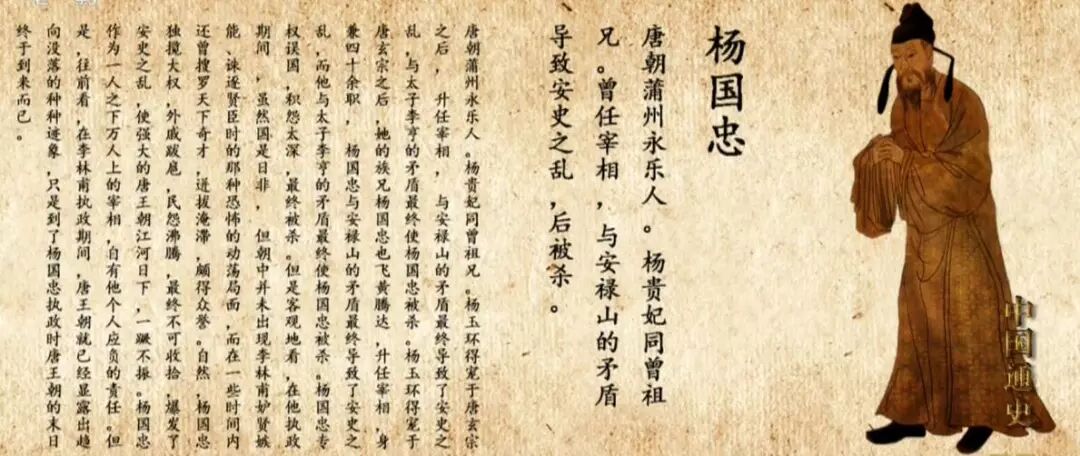 杨国忠
唐朝蒲州永乐人。杨贵妃同曾祖
兄。曾任宰相，与安禄山的矛盾
导致安史之乱，后被杀。
唐朝蒲州永乐人。杨贵妃同曾祖兄。杨玉环得宠于唐玄宗
之后，升任宰相，与安禄山的矛盾最终导致了安史之
乱，与太子李亨的矛盾最终使杨国忠被杀。杨玉环得宠于
唐玄宗之后，她的族兄杨国忠也飞黄腾达，升任宰相，身
兼四十余职，杨国忠与安禄山的矛盾最终导致了安史之
乱，而他与太子李亨的矛盾最终使杨国忠被杀。杨国忠专
权误国，积怨太深，最终被杀。但是客观地看，在他执政
期间，虽然国是日非，但朝中并未出现李林甫妒贤嫉
能、诛逐贤臣时的那种恐怖的动荡局面，而在一些时间内
还曾搜罗天下奇才，进拔淹滞，颇得众誉。自然，杨国忠
独揽大权，外戚跋扈，民怨沸腾，最终不可收拾，爆发了
安史之乱，使强大的唐王朝江河日下，一蹶不振。杨国忠
作为一人之下万人上的宰相，自有他个人应负的责任。但
是，往前看，在李林甫执政期间，唐王朝就已经显露出趋
向没落的种种迹象，只是到了杨国忠执政时唐王朝的末日
终于到来而已。
中国通史